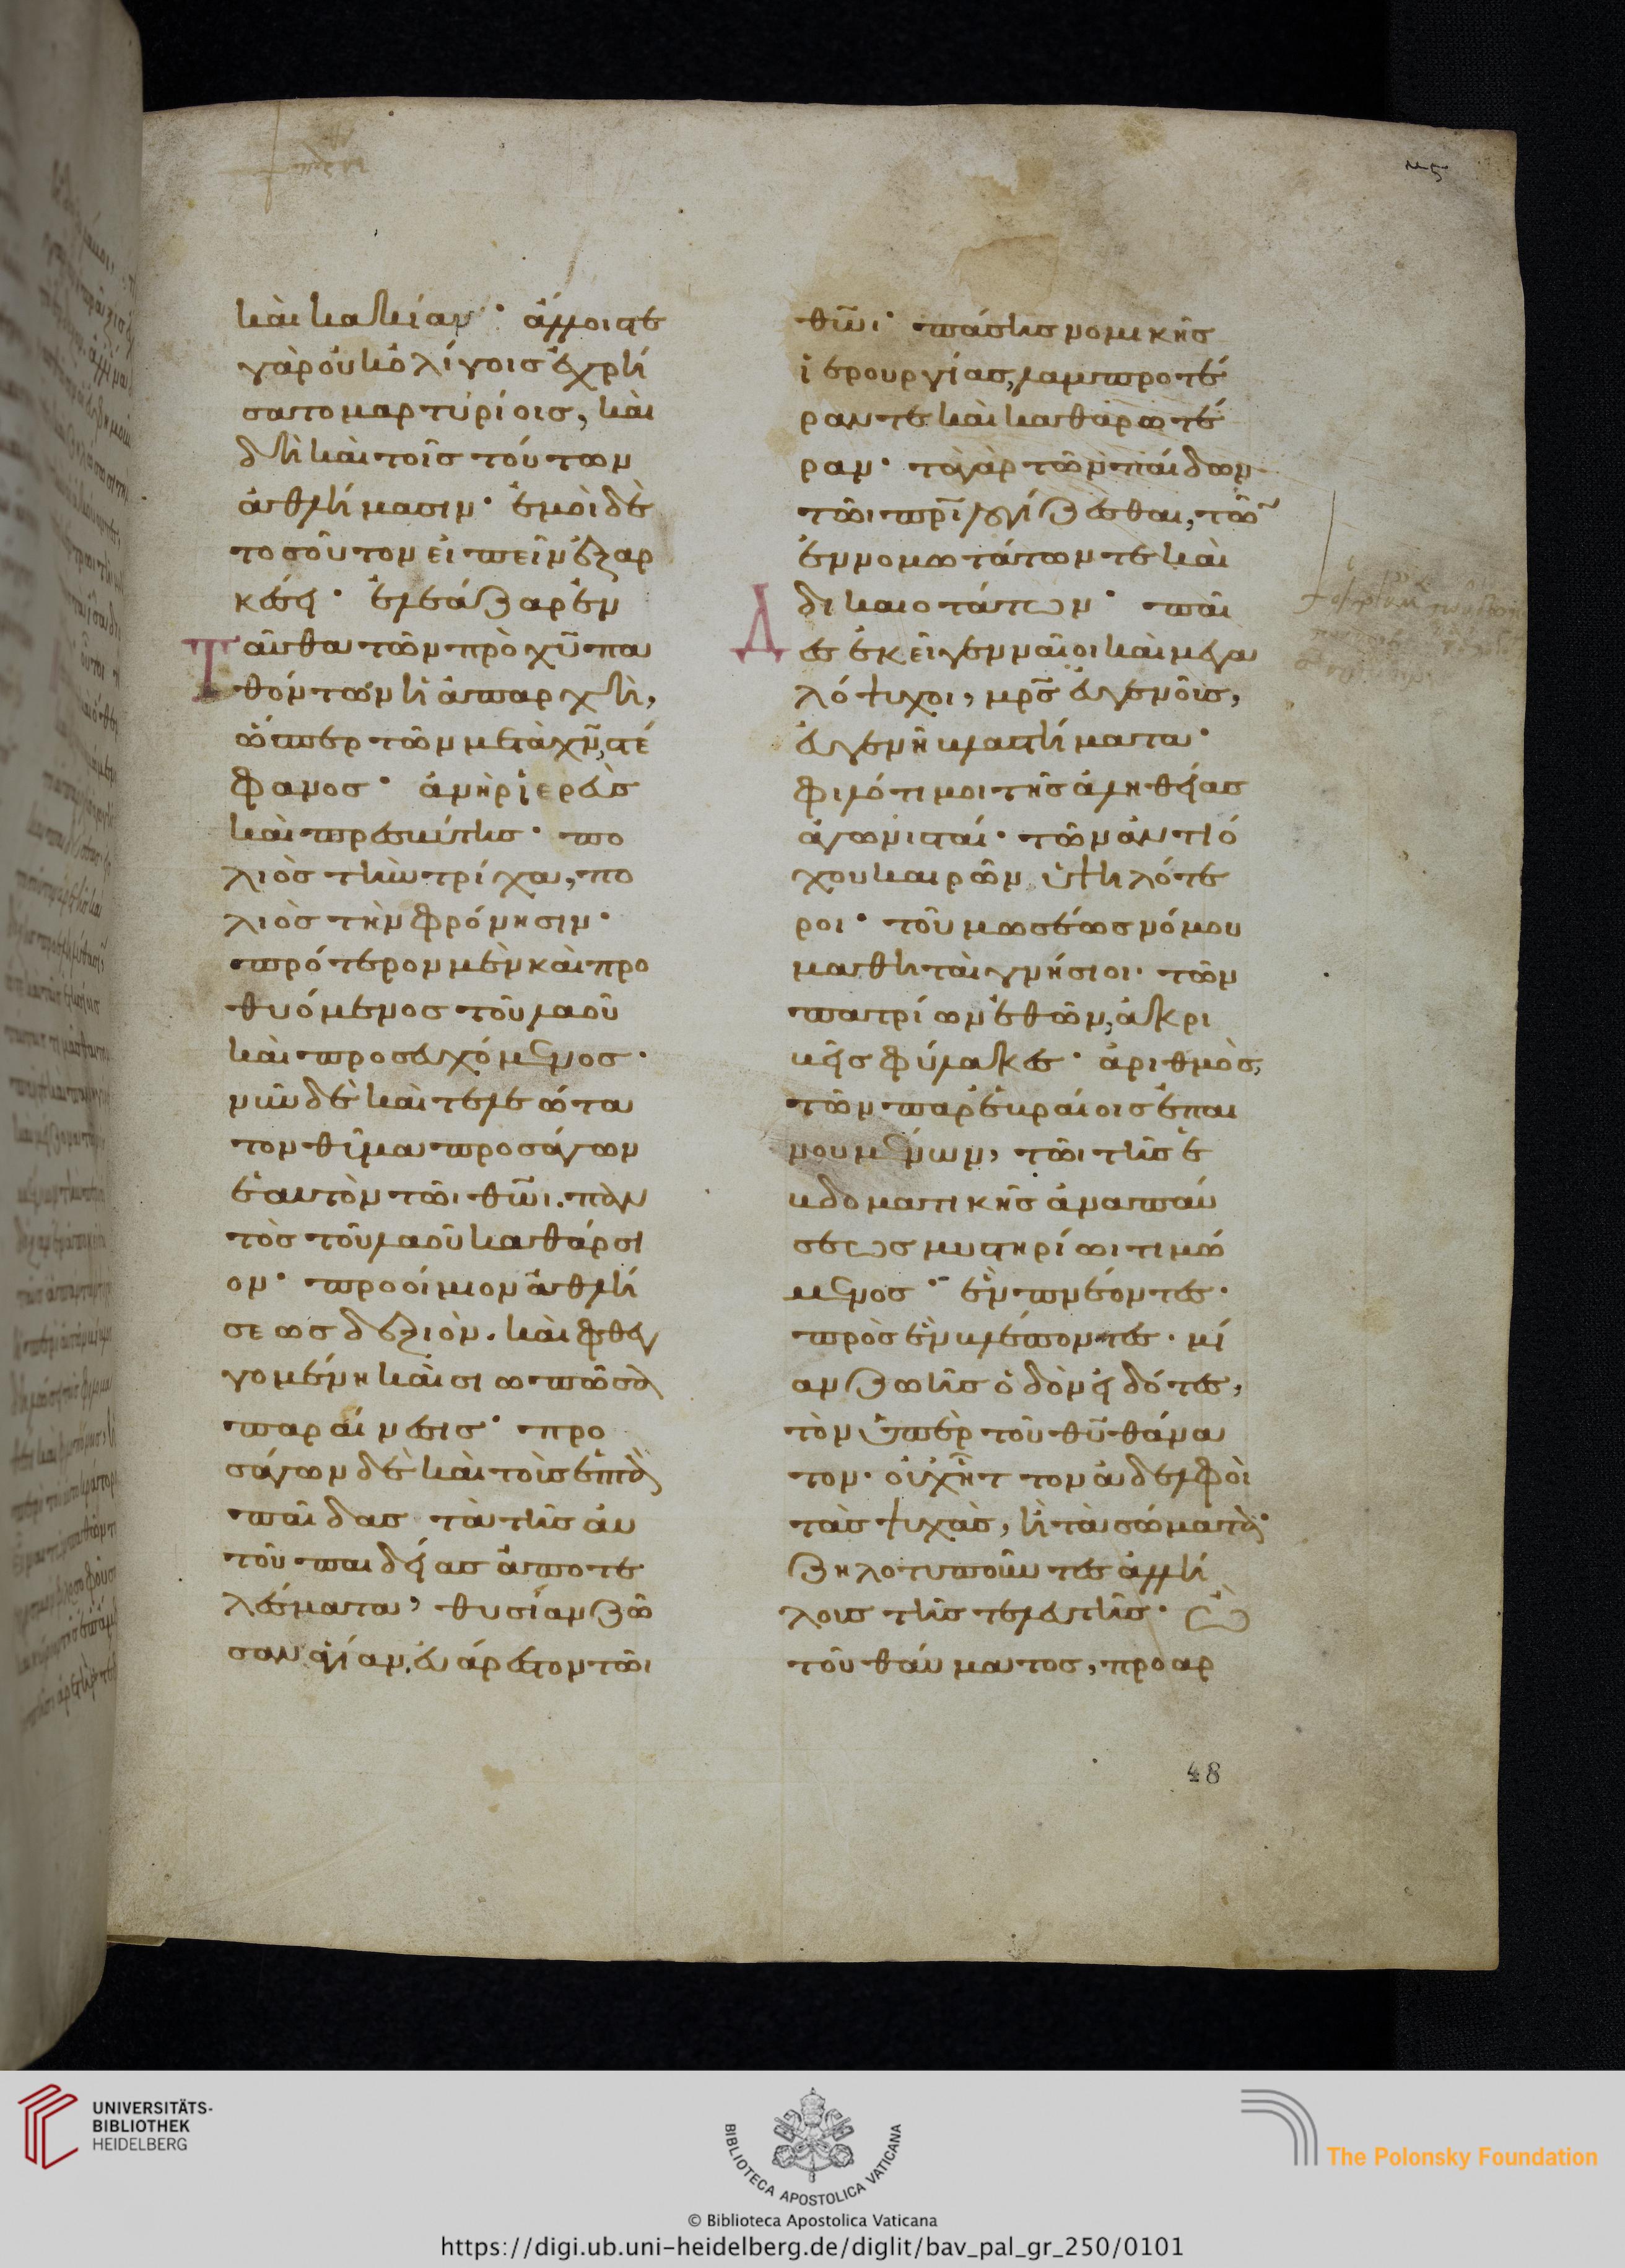 μϛ
καὶ κακίαν· ἄλλοις τε
γὰρ οὐκ ὀλίγοις ἐχρή
σατο μαρτυρίοις, καὶ
δὴ καὶ τοῖς τούτων
ἀθλήμασιν· ἐμοὶ δὲ
τοσοῦτον εἰπεῖν ἐξαρ
κέσει· ἐλεάζαρ ἐν
Ταῦθα τῶν πρὸ χῦ πα
θόντων ἡ ἀπαρχὴ,
ὥσπερ τῶν μετὰ χν̄, στέ
φανος· ἀνὴρ ἱερεὺς
καὶ πρεσβύτης· πο
λιὸς τὴν τρίχα, πο
λιὸς τὴν φρόνησιν·
πρότερον μὲν καὶ προ
θυόμενος τοῦ λαοῦ
καὶ προσευχόμενος·
νῦν δὲ καὶ τελεώτα
τον θῦμα προσάγων
ἑαυτὸν τῶι θω̄ι· παν
τὸς τοῦ λαοῦ καθάρσι
ον· προοίμιον ἀθλή
σεως δεξιὸν· καὶ φθεγ
γομένη καὶ σιωπῶσα
παραίνεσις· προ
σάγων δὲ καὶ τοὺς ἑπτὰ
παῖδας τὰ τῆς αὐ
τοῦ παιδείας ἀποτε
λέσματα, θυσίαν ζῶ
σαν ἁγίαν, εὐάρεστον τῶι
θω̄ι· πάσης νομικῆς
ἱερουργίας, λαμπροτέ
ραν τε καὶ καθαρωτέ
ραν· τὰ γὰρ τῶν παίδων
τῶι πρ̄ὶ λογίζεσθαι, τῶν
ἐννομωτάτων τε καὶ
δικαιοτάτων· παῖ
Δες ἐκεῖ γενναῖοι καὶ μεγα
λόψυχοι, μρ̄ς εὐγενοῦς,
εὐγενῆ βλαστήματα·
φιλότιμοι τῆς ἀληθείας
ἀγωνισταί· τῶν ἀντιό
χου καιρῶν ὑψηλότε
ροι· τοῦ μωσέως νόμου
μαθηταὶ γνήσιοι· τῶν
πατρίων ἐθῶν, ἀκρι
βεῖς φύλακες· ἀριθμὸς,
τῶν παρ' ἑβραίοις ἐπαι
νουμένων, τῶι τῆς ἑ
βδοματικῆς ἀναπαύ
σεως μυστηρίωι τιμώ
μενος· ἓν πνέοντες·
πρὸς ἓν βλέποντες· μί
αν ζωῆς ὁδὸν εἰδότες,
τὸν ὑπὲρ τοῦ θῡ θάνα
τον· οὐχ ἧττον ἀδελφοὶ
τὰς ψυχὰς, ἢ τὰ σώματα·
ζηλοτυποῦντες ἀλλή
λοις τῆς τελευτῆς· ὢ
τοῦ θαύματος, προαρ
48
UNIVERSITÄTS-
BIBLIOTHEK
HEIDELBERG
BIBLIOTECA APOSTOLICA VATICANA
The Polonsky Foundation
© Biblioteca Apostolica Vaticana
https://digi.ub.uni-heidelberg.de/diglit/bav_pal_gr_250/0101